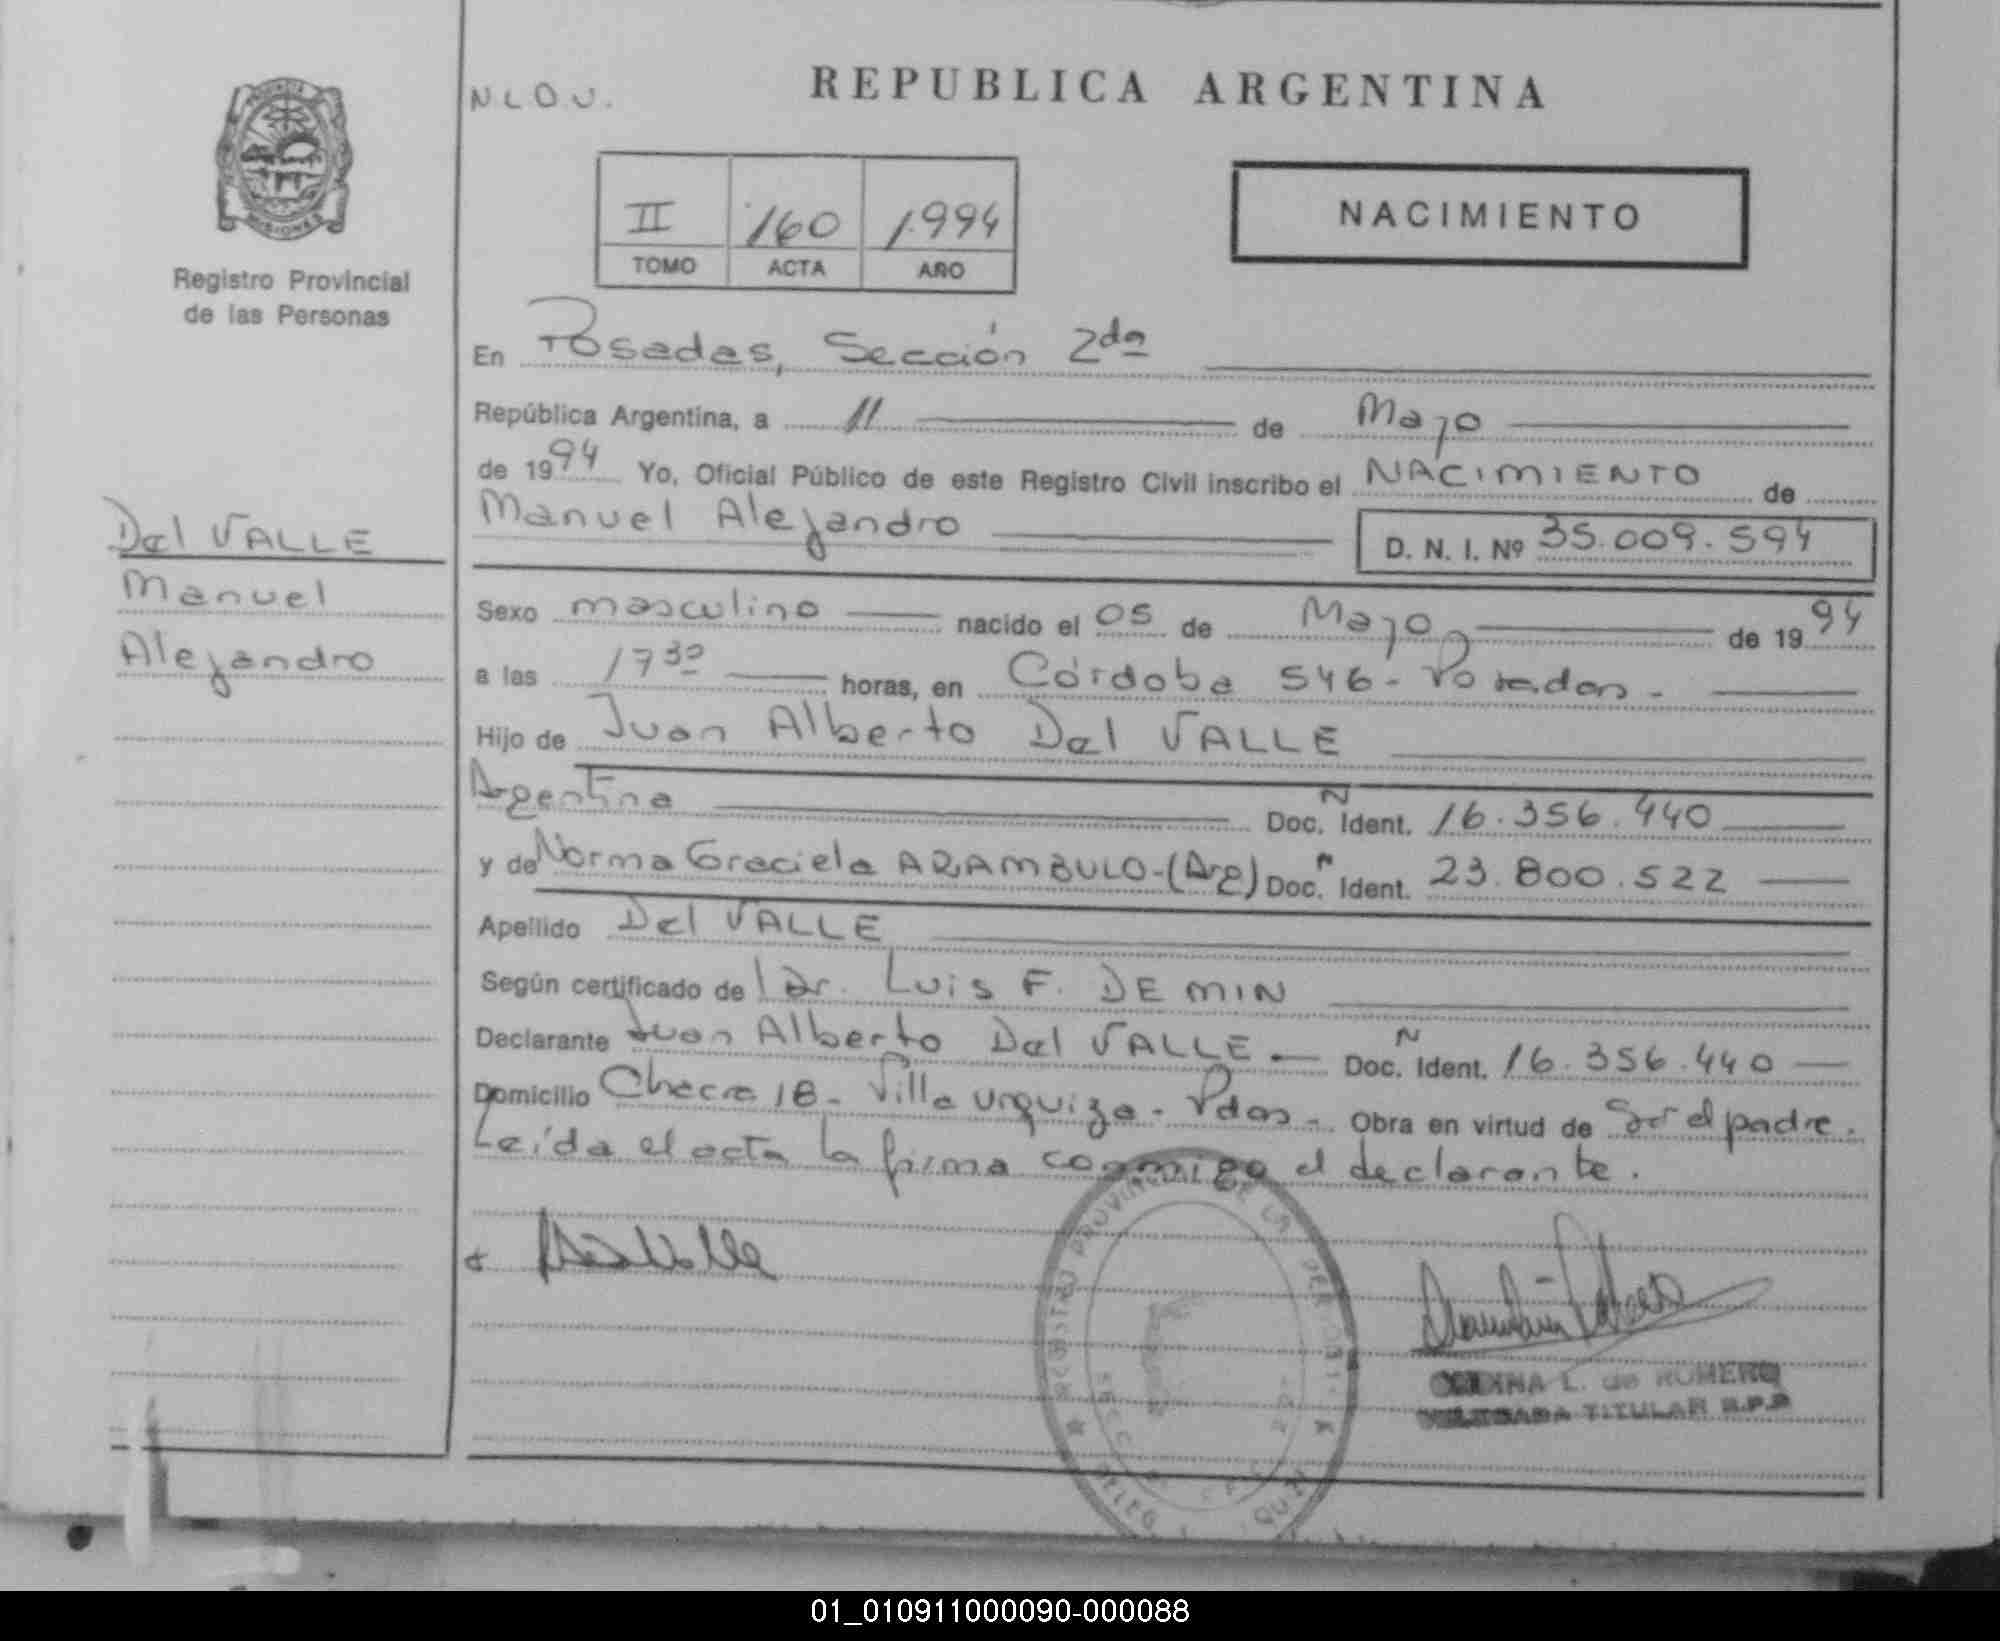 PROVINCIA
MISIONES
Registro Provincial
de las Personas
Del VALLE
Manuel
Alejandro
N L O U.
REPUBLICA ARGENTINA
II 160 1.994
TOMO ACTA AÑO
NACIMIENTO
En Posadas, Sección 2da
República Argentina, a 11 de Mayo
de 1994 Yo, Oficial Público de este Registro Civil inscribo el NACIMIENTO de
Manuel Alejandro D. N. I. Nº 35.009.594
Sexo masculino nacido el 05 de Mayo de 1994
a las 17 30 horas, en Córdoba 546- Posadas-
Hijo de Juan Alberto Del VALLE
Argentina Doc. Ident. 16.356.440
y de Norma Graciela ARAMBULO-(Arg) Doc. Ident. 23.800.522
Apellido Del VALLE
Según certificado de l Dr. Luis F. DEMIN
Declarante Juan Alberto Del VALLE Doc. Ident. 16.356.440
Domicilio Chacra 18- Villa Urquiza- Pdas- Obra en virtud de Ser el padre.
Leída el acta la firma conmigo el declarante.
REGISTRO PROVINCIAL DE LAS PERSONAS
L. de ROMERO
TITULAR R.P.P
01_010911000090-000088